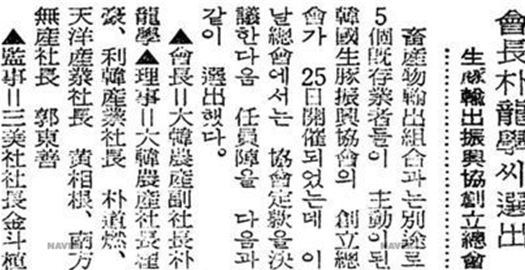 會長朴龍學씨選出
生豚輸出振興協創立總會
畜産物輸出組合과는別途로
5個既存業者들이 主動이된
韓國生豚振興協會의 創立總
會가 25日開催되었는데 이
날總會에서는 協會定款을決
議한다음 任員陣을 다음과
같이 選出했다。
▲會長=大韓農産副社長朴
龍學▲理事=大韓農産社長
豪、利韓産業社長 朴道燃、
天洋産業社長 黃相根、南方
無産社長 郭東善
▲監事=三美社社長金斗植